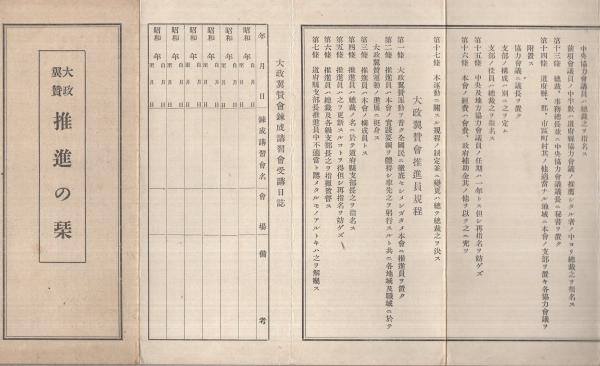 中央協力會議員ハ總裁之ヲ指名ス
前項會議員ノ中半數ハ道府縣協力會議ノ推薦シタル者ノ中ヨリ總裁之ヲ指名ス
第十三條 總裁、事務總長並ニ中央協力會議議長ニ祕書ヲ置ク
第十四條 道府縣、郡、市區町村其ノ他適當ナル地域ニ本會ノ支部ヲ置キ各協力會議ヲ
附置ス
協力會議ニ議長ヲ置ク
支部ノ構成ハ別ニ之ヲ定ム
支部ノ役員ハ總裁之ヲ指名ス
第十五條 中央及地方協力會議員ノ任期ハ一年トス但シ再指名ヲ妨ゲズ
第十六條 本會ノ經費ハ會費、政府補助金其ノ他ヲ以テ之ニ充ツ
第十七條 本運動ニ關スル規程ノ制定並ニ變更ハ總テ總裁之ヲ決ス
大政翼賛會推進員規程
第一條 大政翼賛運動ヲ普ク全國民ニ徹底セシメンガタメ本會ニ推進員ヲ置ク
第二條 推進員ハ本會ノ實踐要綱ヲ體得シ率先之ヲ躬行スルト共ニ各地域及職域ニ於テ
大政翼賛運動ノ進展ニ挺身ス
第三條 推進員ハ本會ノ構成員トス
第四條 推進員ハ總裁ノ名ニ於テ道府縣支部長之ヲ指名ス
第五條 推進員ハ之ヲ更新スルコトヲ得但シ再指名ヲ妨ゲズ
第六條 推進員ハ總裁及各級支部長之ヲ指揮監督ス
第七條 道府縣支部長推進員中不適當ト認メタルモノアルトキハ之ヲ解囑ス
大政翼賛會錬成講習會受講日誌
年月日 錬成講習會名 會場 備考
昭和 年 自 月 日 至 月 日
昭和 年 自 月 日 至 月 日
昭和 年 自 月 日 至 月 日
昭和 年 自 月 日 至 月 日
昭和 年 自 月 日 至 月 日
昭和 年 自 月 日 至 月 日
大政
翼賛
推進の栞